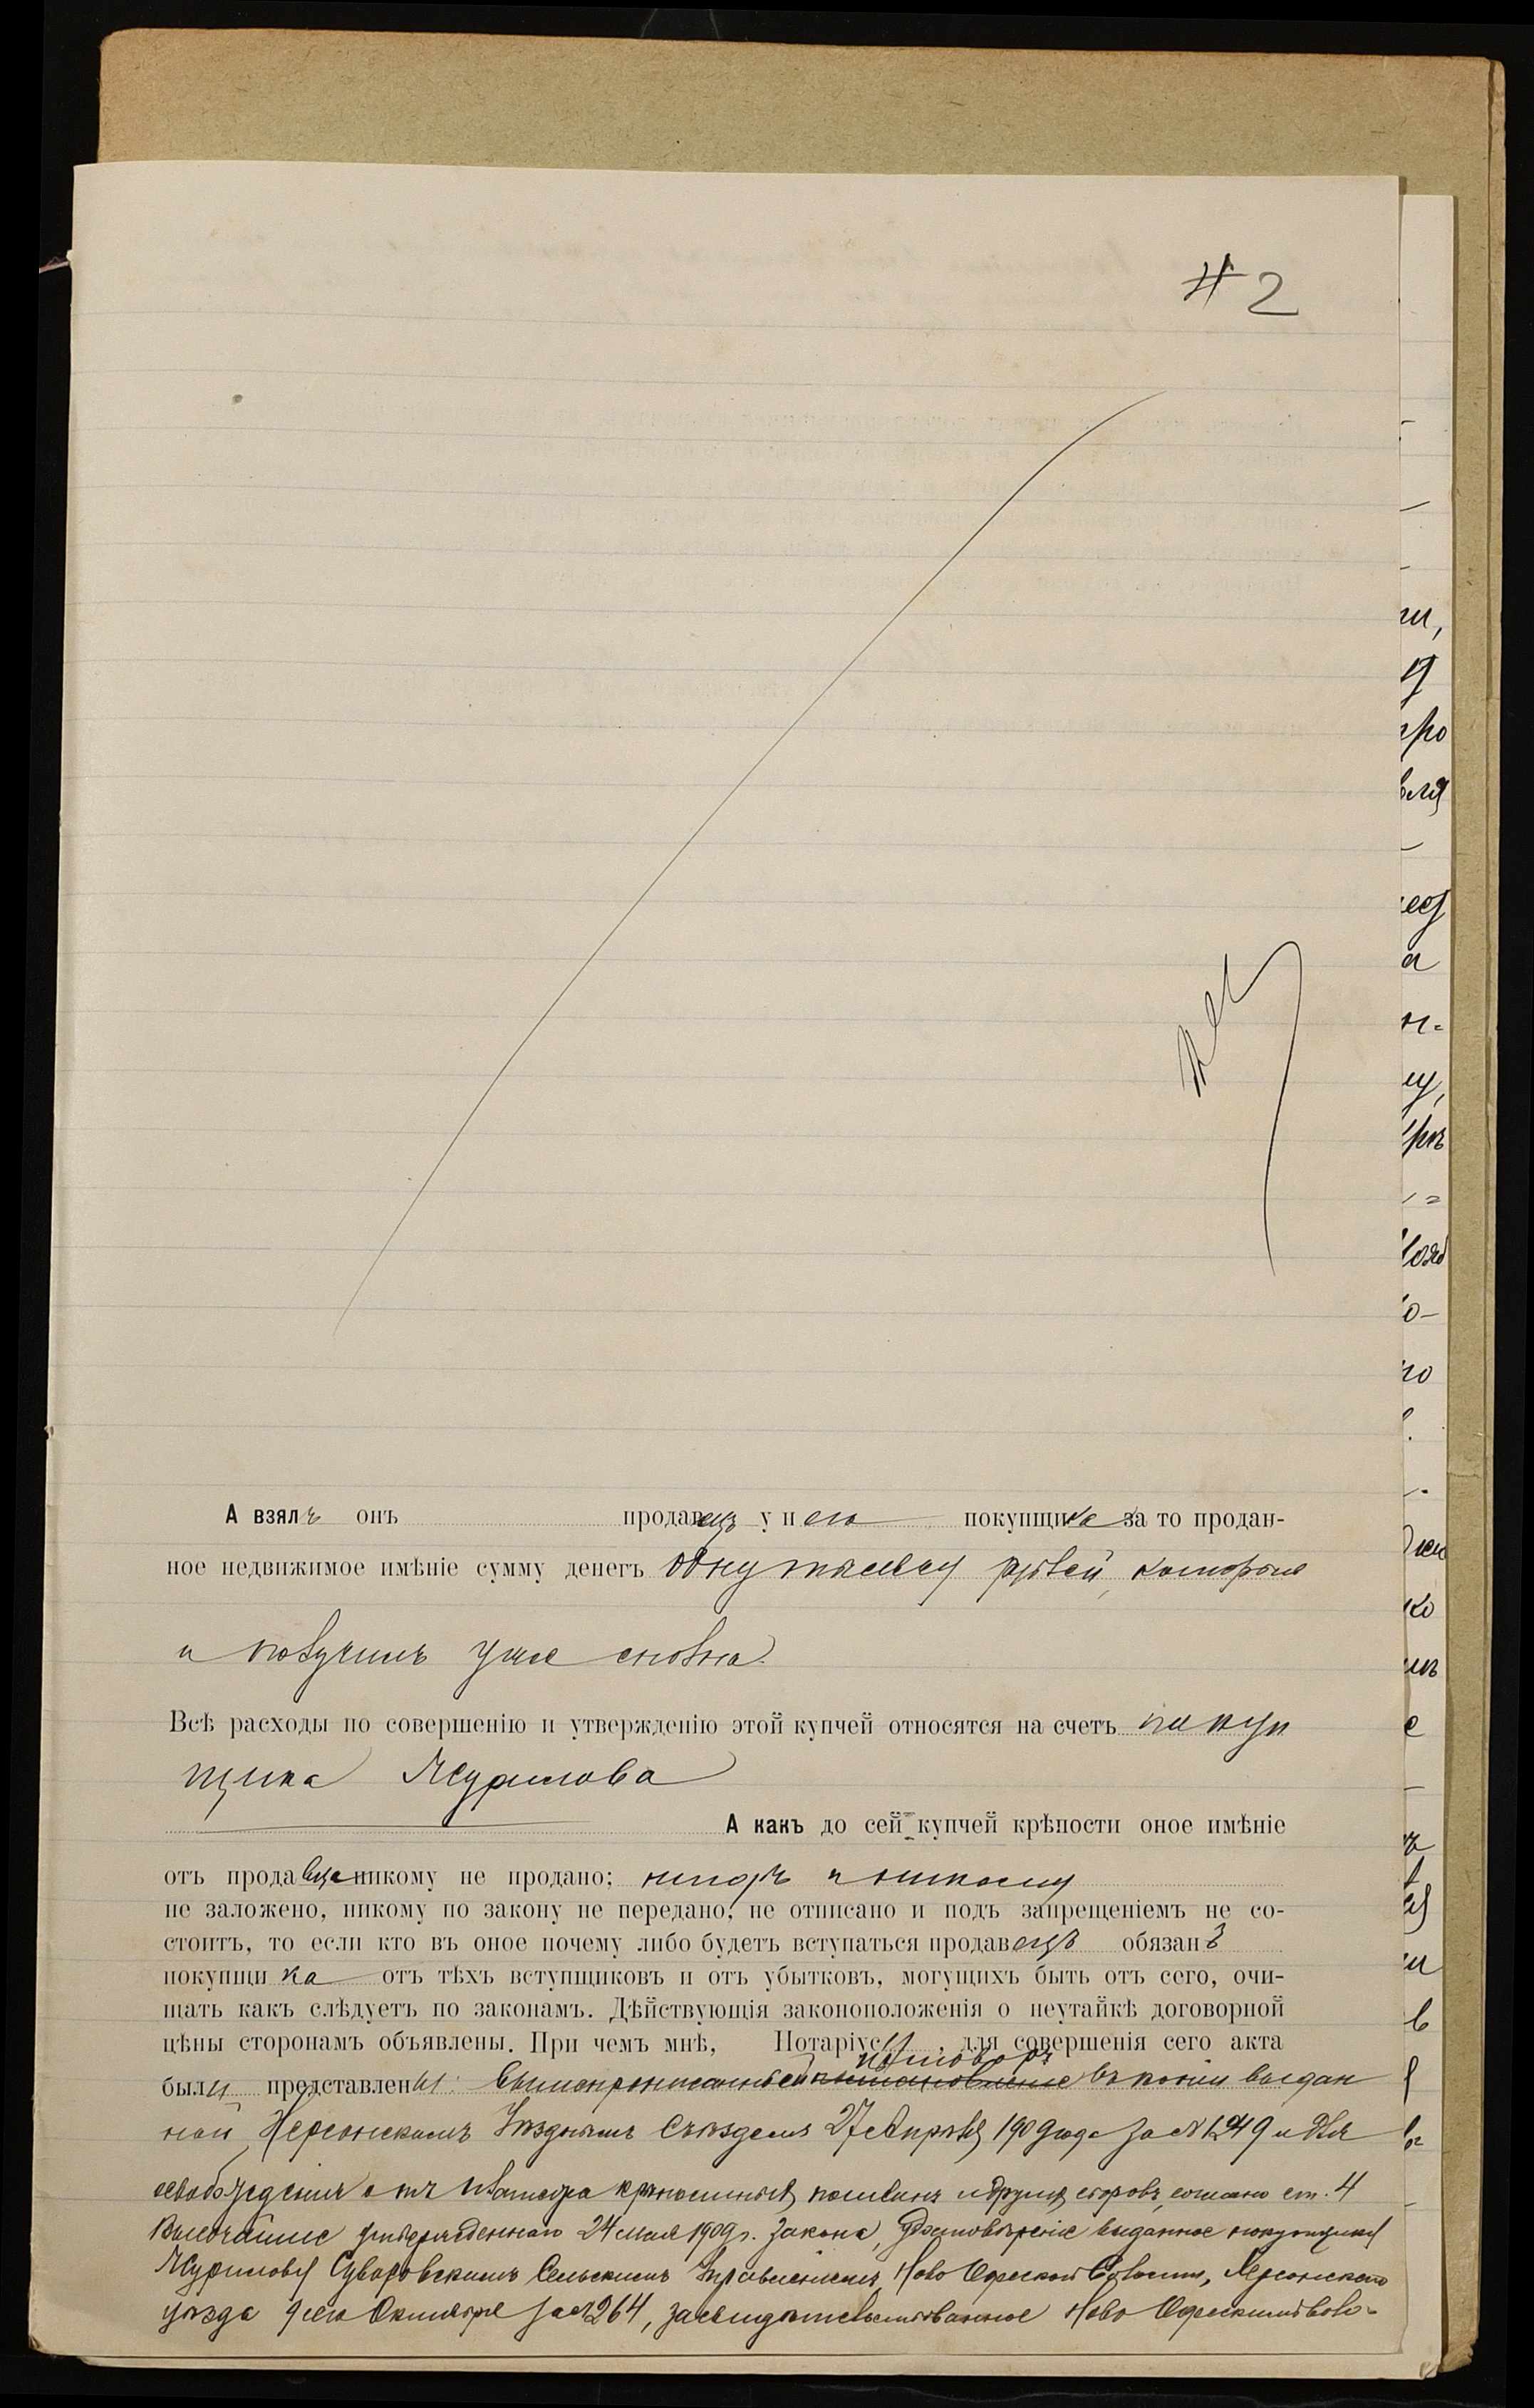 # 2
А взялъ онъ продавецъ у него покупщика за то продан-
ное недвижимое имѣніе сумму денегъ одну тысячу рублей, которые
и получилъ уже сполна.
Всѣ расходы по совершенію и утвержденію этой купчей относятся на счетъ покуп
щика
А какъ до сей купчей крѣпости оное имѣніе
отъ продавца никому не продано; нигдѣ и никому
не заложено, никому по закону не передано, не отписано и подъ запрещеніемъ не со-
стоитъ, то если кто въ оное почему либо будетъ вступаться продавецъ обязанъ
покупщика отъ тѣхъ вступщиковъ и отъ убытковъ, могущихъ быть отъ сего, очи-
щать какъ слѣдуетъ по законамъ. Дѣйствующія законоположенія о неутайкѣ договорной
цѣны сторонамъ объявлены. При чемъ мнѣ, Нотаріусу, для совершенія сего акта
приговоръ
были представлены: вышепрописанный постановленіе въ копіи выдан
ной Херсонскимъ Уѣзднымъ Съѣздомъ 27 Апрѣля 1909 года за № 1249 и для
освобожденія отъ платежа крѣпостныхъ пошлинъ и другихъ сборовъ, согласно ст. 4
Высочайше утвержденнаго 24 мая 1909 г. закона, удостовѣреніе выданное покупщику
Суворовскимъ Сельскимъ Управленіемъ, Ново Одесской Волости, Херсонскаго
уѣзда 9 сего Октября за № 264, засвидѣтельствованное Ново Одесскимъ Воло-